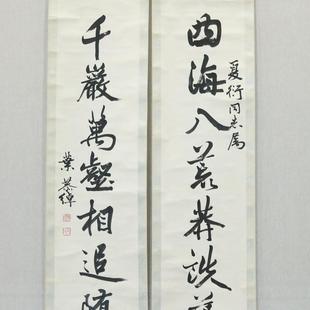 四海八荒莽
夏衍同志属
千巖萬壑相追随
葉恭綽